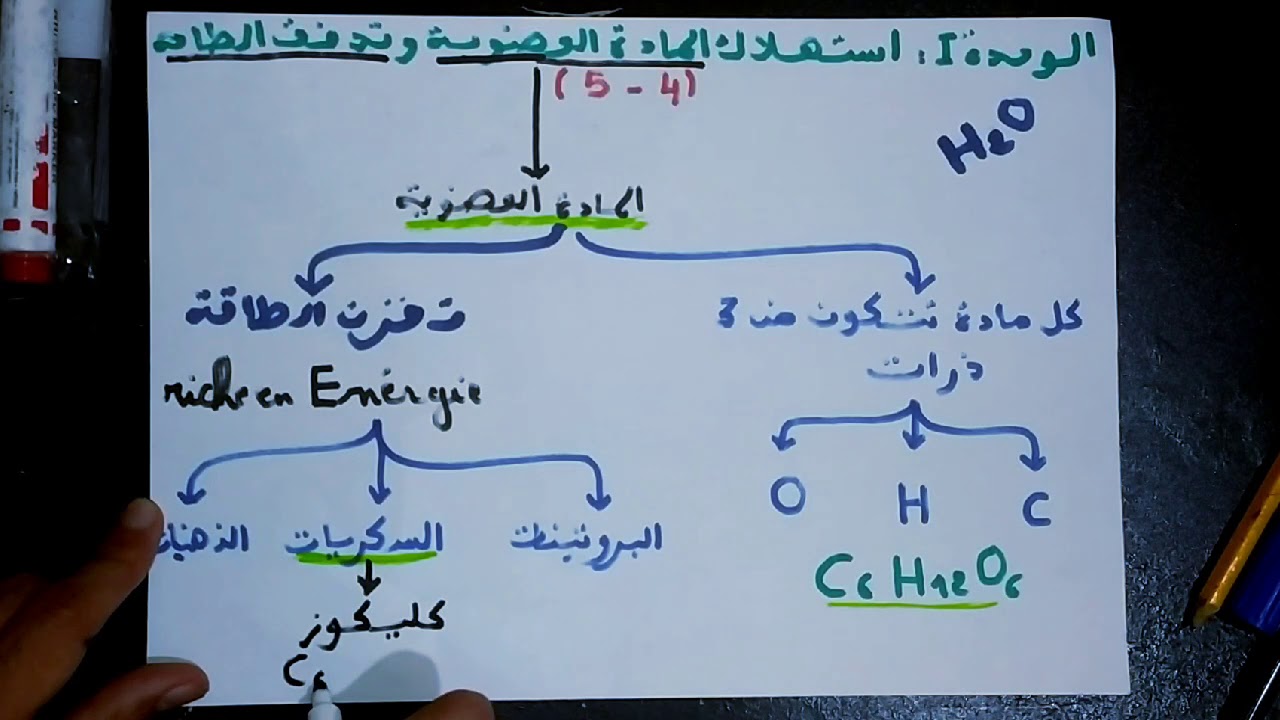 الوحدة I: استهلاك المادة العضوية وتدفق الطاقة
(4 - 5)
H2O
المادة العضوية
كل مادة تتكون من 3
ذرات
C H O
C6 H12 O6
تخزن الطاقة
riche en Energie
البروتينات السكريات الذهنيات
كليكوز
C6